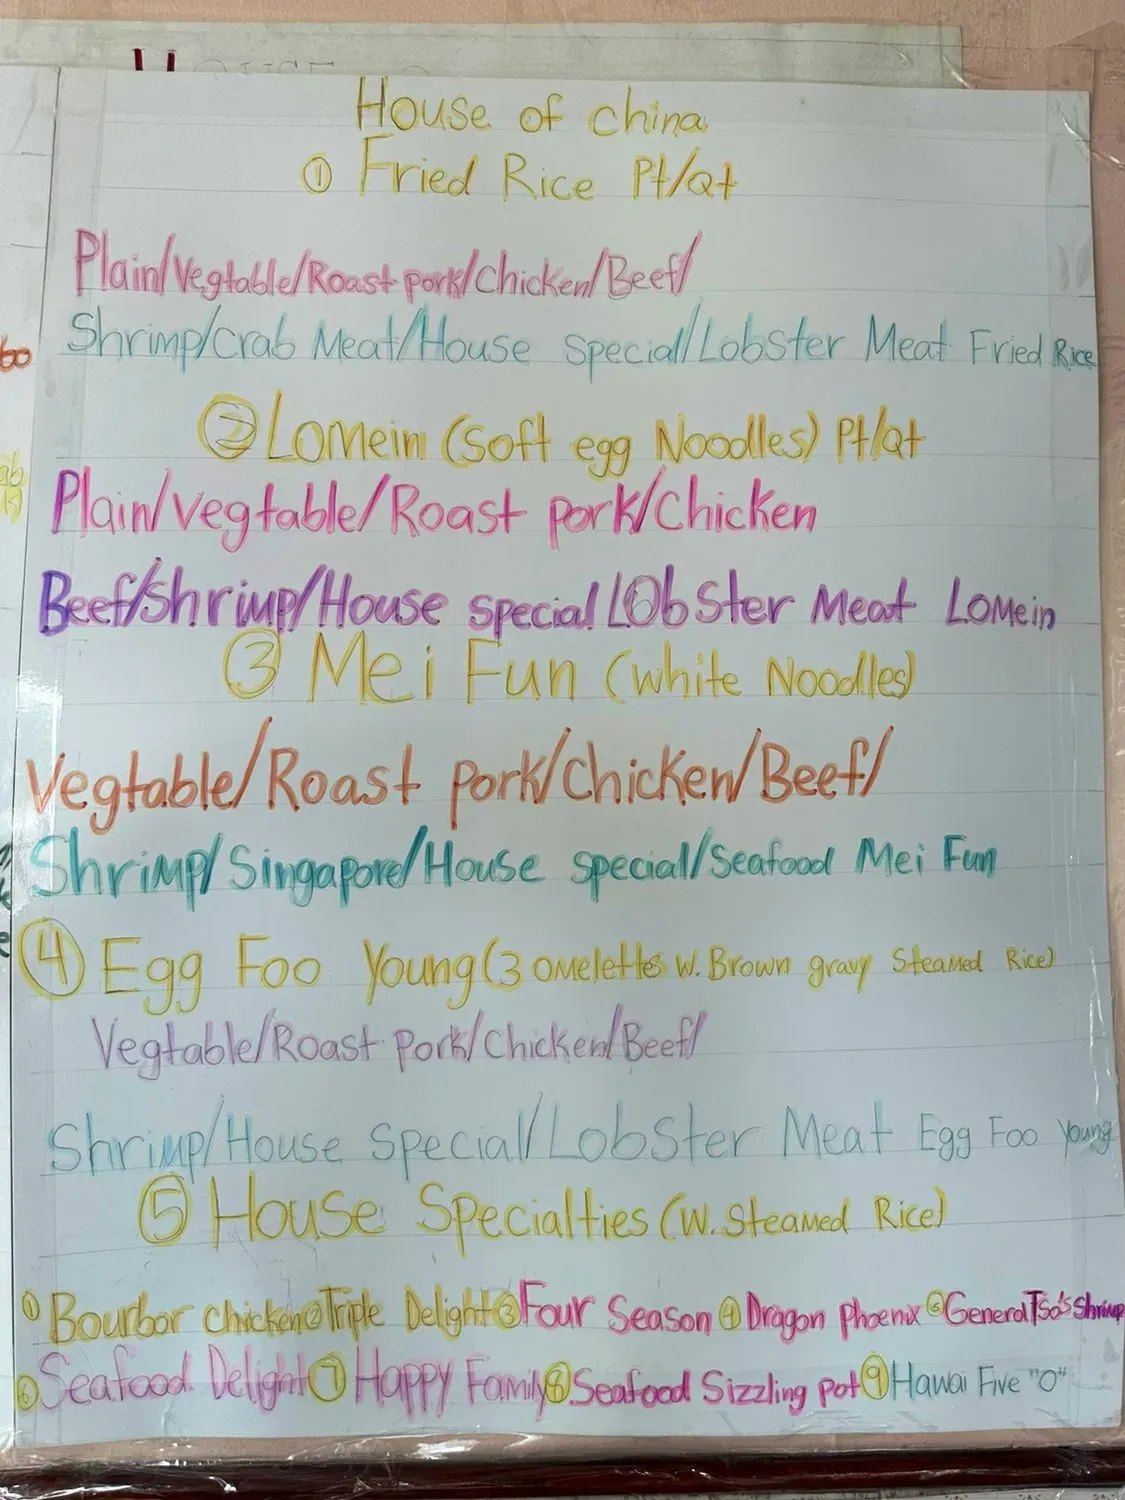 House of china
① Fried Rice Pt/Qt
Plain/Vegtable/Roast pork/Chicken/Beef/
Shrimp/Crab Meat/House special/Lobster Meat Fried Rice
② Lomein (Soft egg Noodles) Pt/Qt
Plain/vegtable/Roast pork/Chicken
Beef/Shrimp/House special/LObster Meat Lomein
③ Mei Fun (white Noodles)
Vegtable/Roast pork/Chicken/Beef/
Shrimp/Singapore/House special/Seafood Mei Fun
④ Egg Foo Young (3 omelettes w. Brown gravy Steamed Rice)
Vegtable/Roast pork/Chicken/Beef/
Shrimp/House Special/Lobster Meat Egg Foo Young
⑤ House Specialties (w. Steamed Rice)
① Bourbor Chicken ② Triple Delight ③ Four Season ④ Dragon Phoenix ⑤ General Tso's Shrimp
⑥ Seafood Delight ⑦ Happy Family ⑧ Seafood Sizzling pot ⑨ Hawai Five "O"